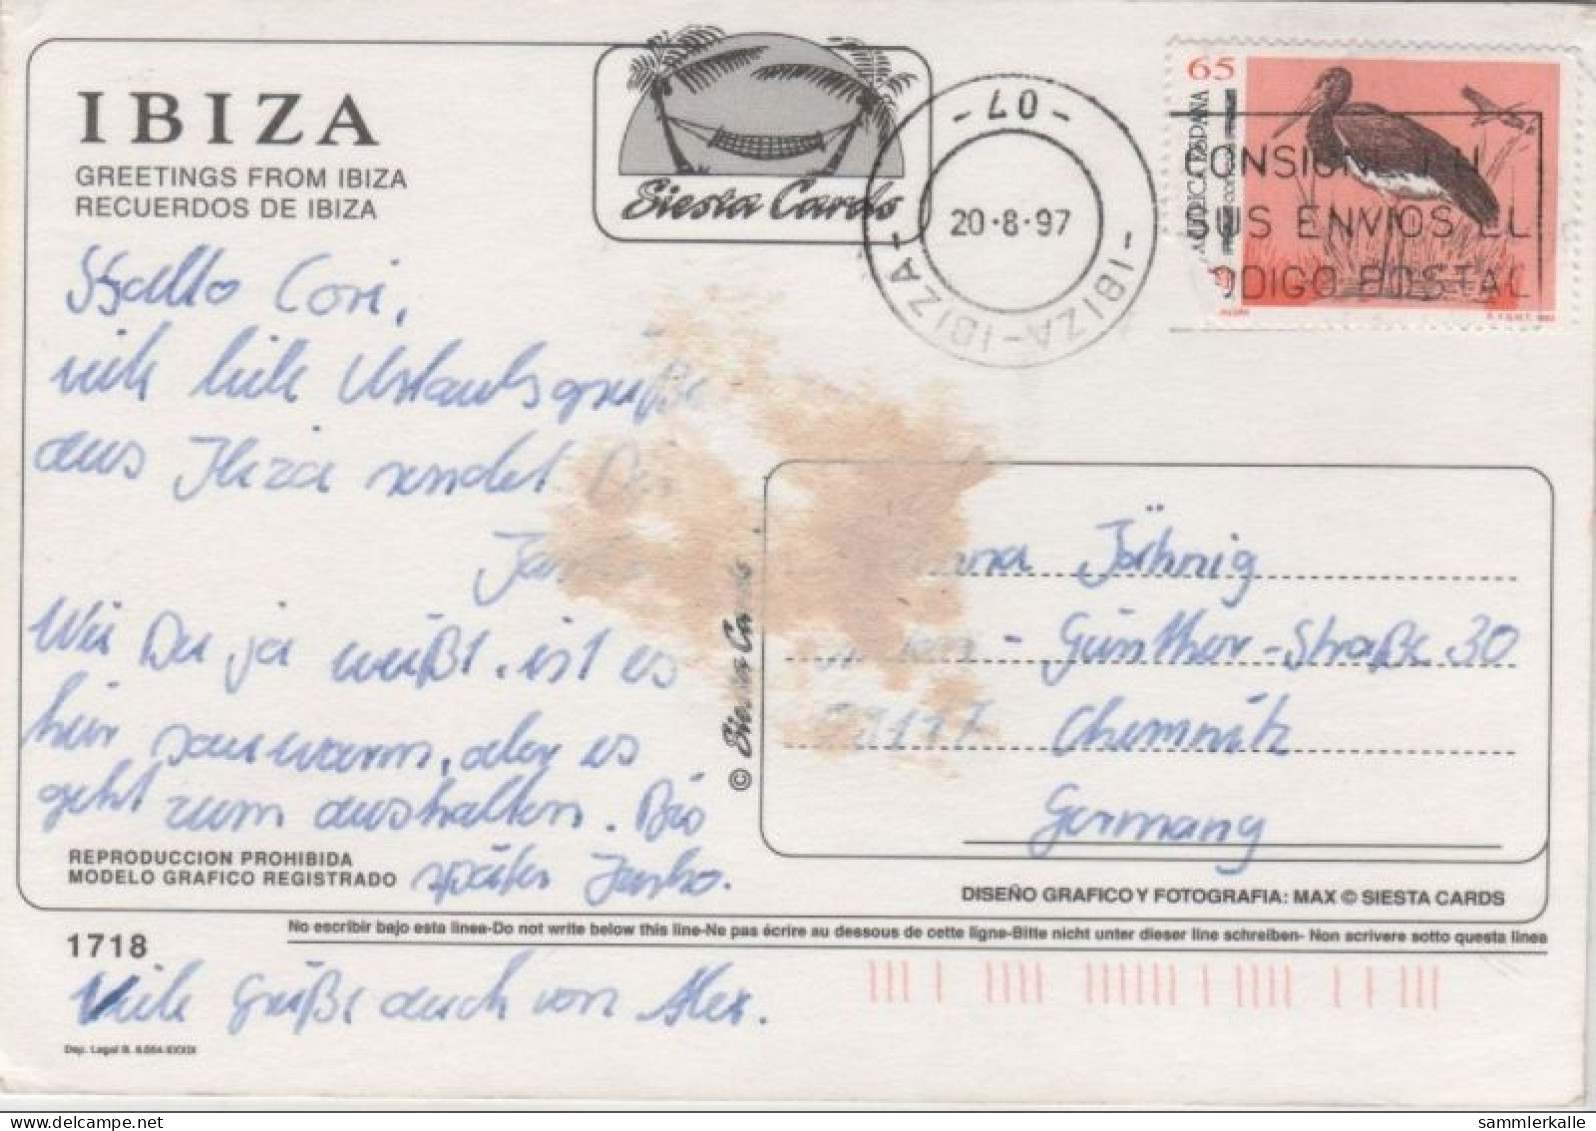 IBIZA
GREETINGS FROM IBIZA
RECUERDOS DE IBIZA
Siesta Cards
- 07 -
20·8·97
-IBIZA-IBIZA-
65
ESPAÑA
CONSIGNE EN
SUS ENVIOS EL
CODIGO POSTAL
Hallo Cori,
viele liebe Urlaubsgrüße
aus Ibiza sendet Dir
Wie Du ja weißt, ist es
hier sauwarm, aber es
geht zum aushalten. Bis
später Janko.
© Siesta Cards
Jähnig
Günther-Straße 30
Chemnitz
Germany
REPRODUCCION PROHIBIDA
MODELO GRAFICO REGISTRADO
DISEÑO GRAFICO Y FOTOGRAFIA: MAX © SIESTA CARDS
No escribir bajo esta linea-Do not write below this line-Ne pas écrire au dessous de cette ligne-Bitte nicht unter dieser line schreiben- Non scrivere sotto questa linea
1718
Viele Grüße auch von Alex.
www.delcampe.net
sammlerkalle